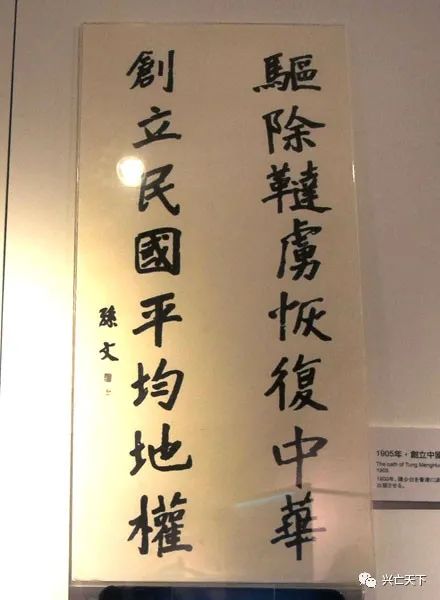 驅除韃虜恢復中華
創立民國平均地權
孫文
1905年，創立中國
The oath of Tung MengHui
1905
兴亡天下